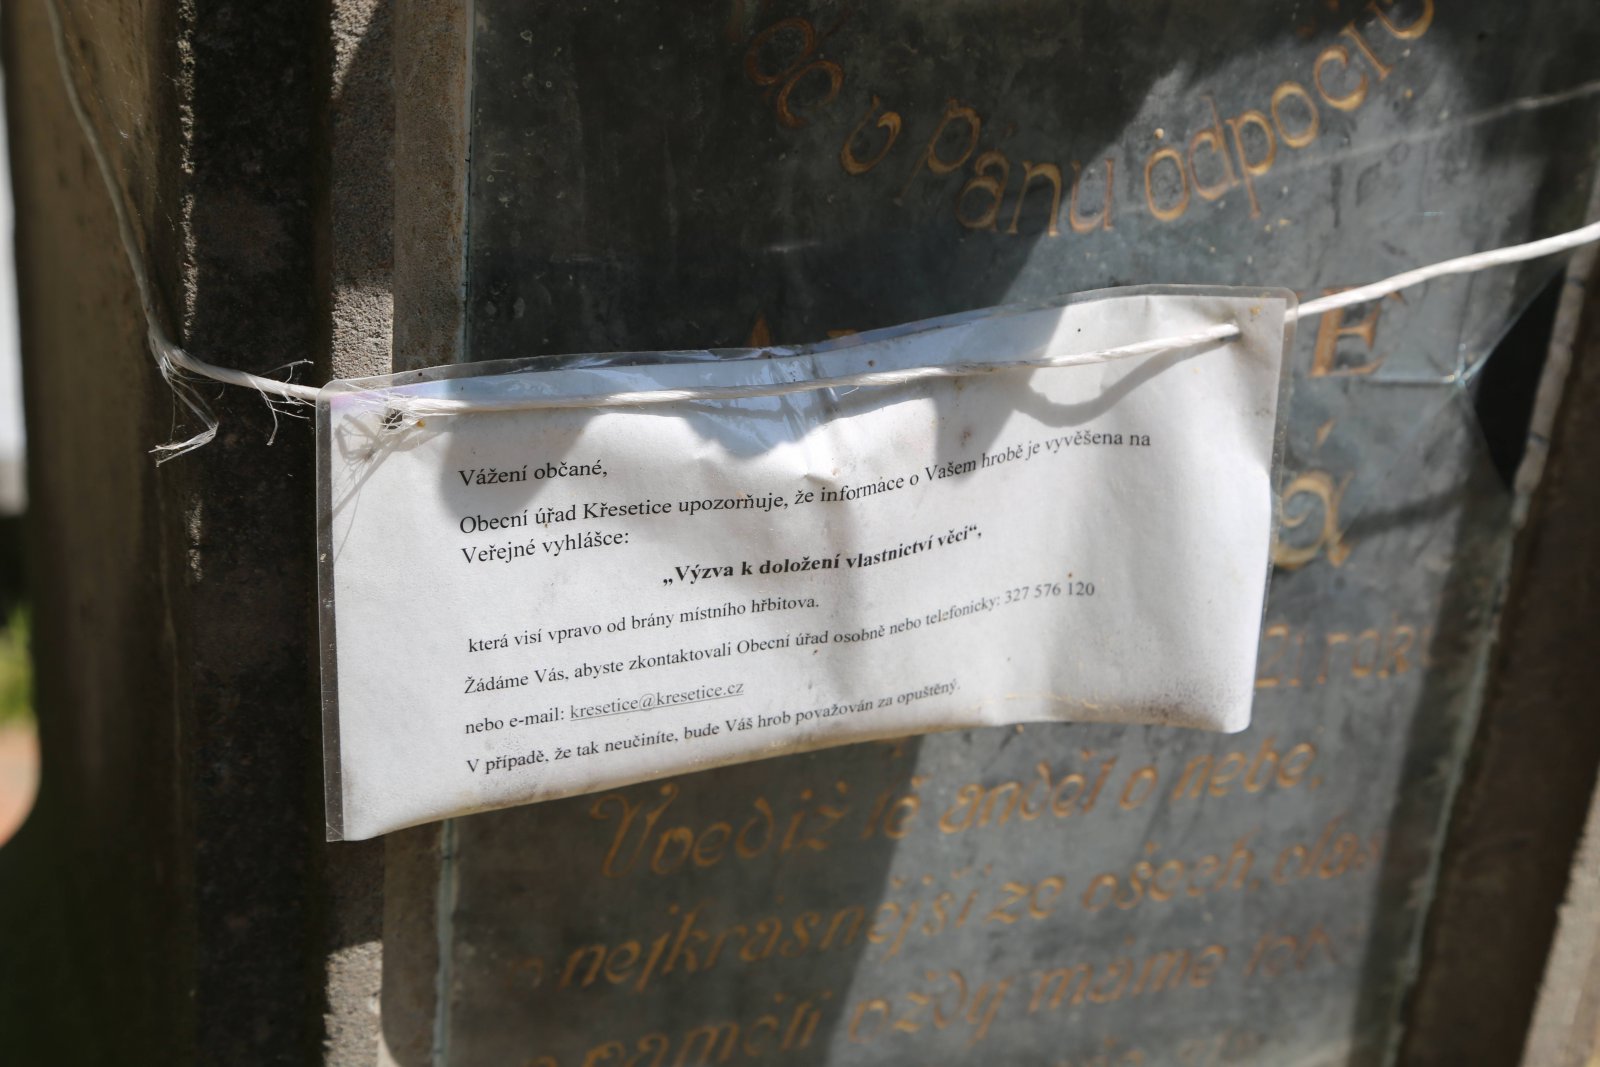 v Pánu odpočív
E
á
Vážení občané,
Obecní úřad Křesetice upozorňuje, že informace o Vašem hrobě je vyvěšena na
Veřejné vyhlášce:
„Výzva k doložení vlastnictví věci“,
která visí vpravo od brány místního hřbitova.
Žádáme Vás, abyste zkontaktovali Obecní úřad osobně nebo telefonicky: 327 576 120
nebo e-mail: kresetice@kresetice.cz
V případě, že tak neučiníte, bude Váš hrob považován za opuštěný.
21 roků
Vvediž tě anděl v nebe,
nejkrásnější ze všech, vlas
paměti vždy máme tebe